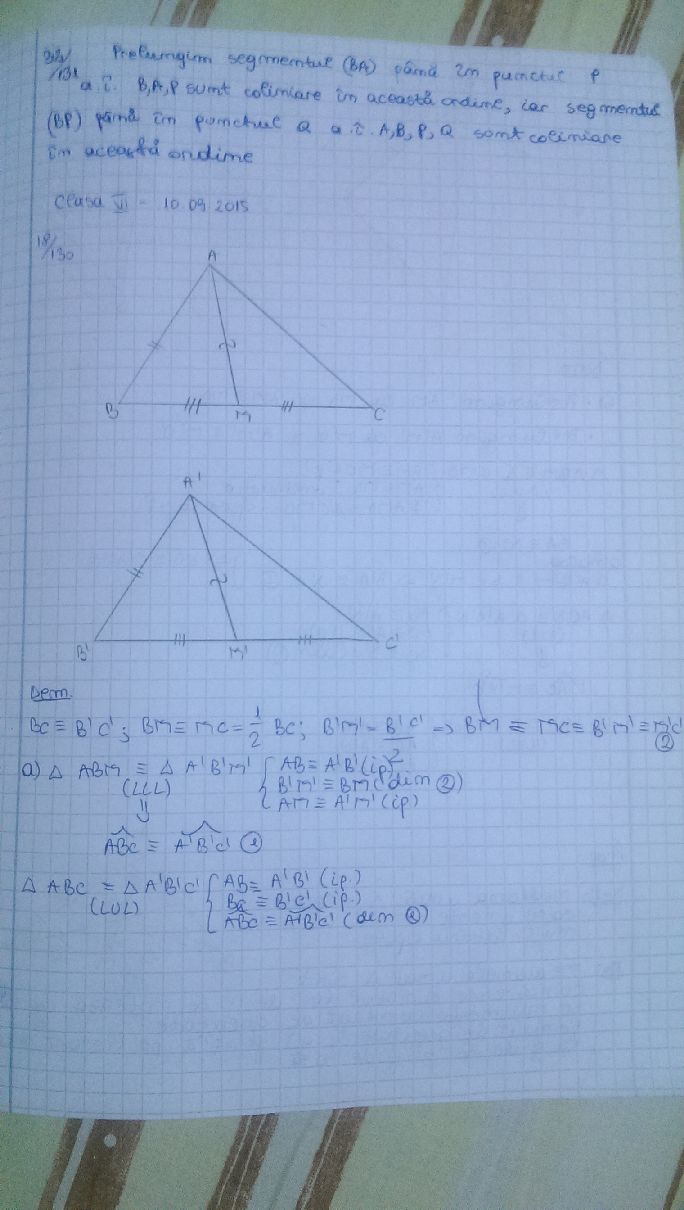 Prelungim segmentul (BA) până în punctul P
/131 a.î. B,A,P sunt coliniare în această ordine, iar segmentul
(BP) până în punctul Q a.î. A,B,P,Q sunt coliniare
în această ordine
Clasa VI - 10.09.2015
18/130
A
B M C
A'
B' M' C'
Dem.
BC ≡ B'C'; BM ≡ MC = 1/2 BC; B'M' = B'C'/2 => BM ≡ MC ≡ B'M' ≡ M'C' (2)
a) Δ ABM ≡ Δ A'B'M' { AB ≡ A'B' (ip)
(LLL) B'M' ≡ BM (dim (2))
⇓ AM ≡ A'M' (ip)
ABC ≡ A'B'C' (1)
Δ ABC ≡ Δ A'B'C' { AB ≡ A'B' (ip.)
(LUL) BC ≡ B'C' (ip.)
ABC ≡ A'B'C' (dem (2))